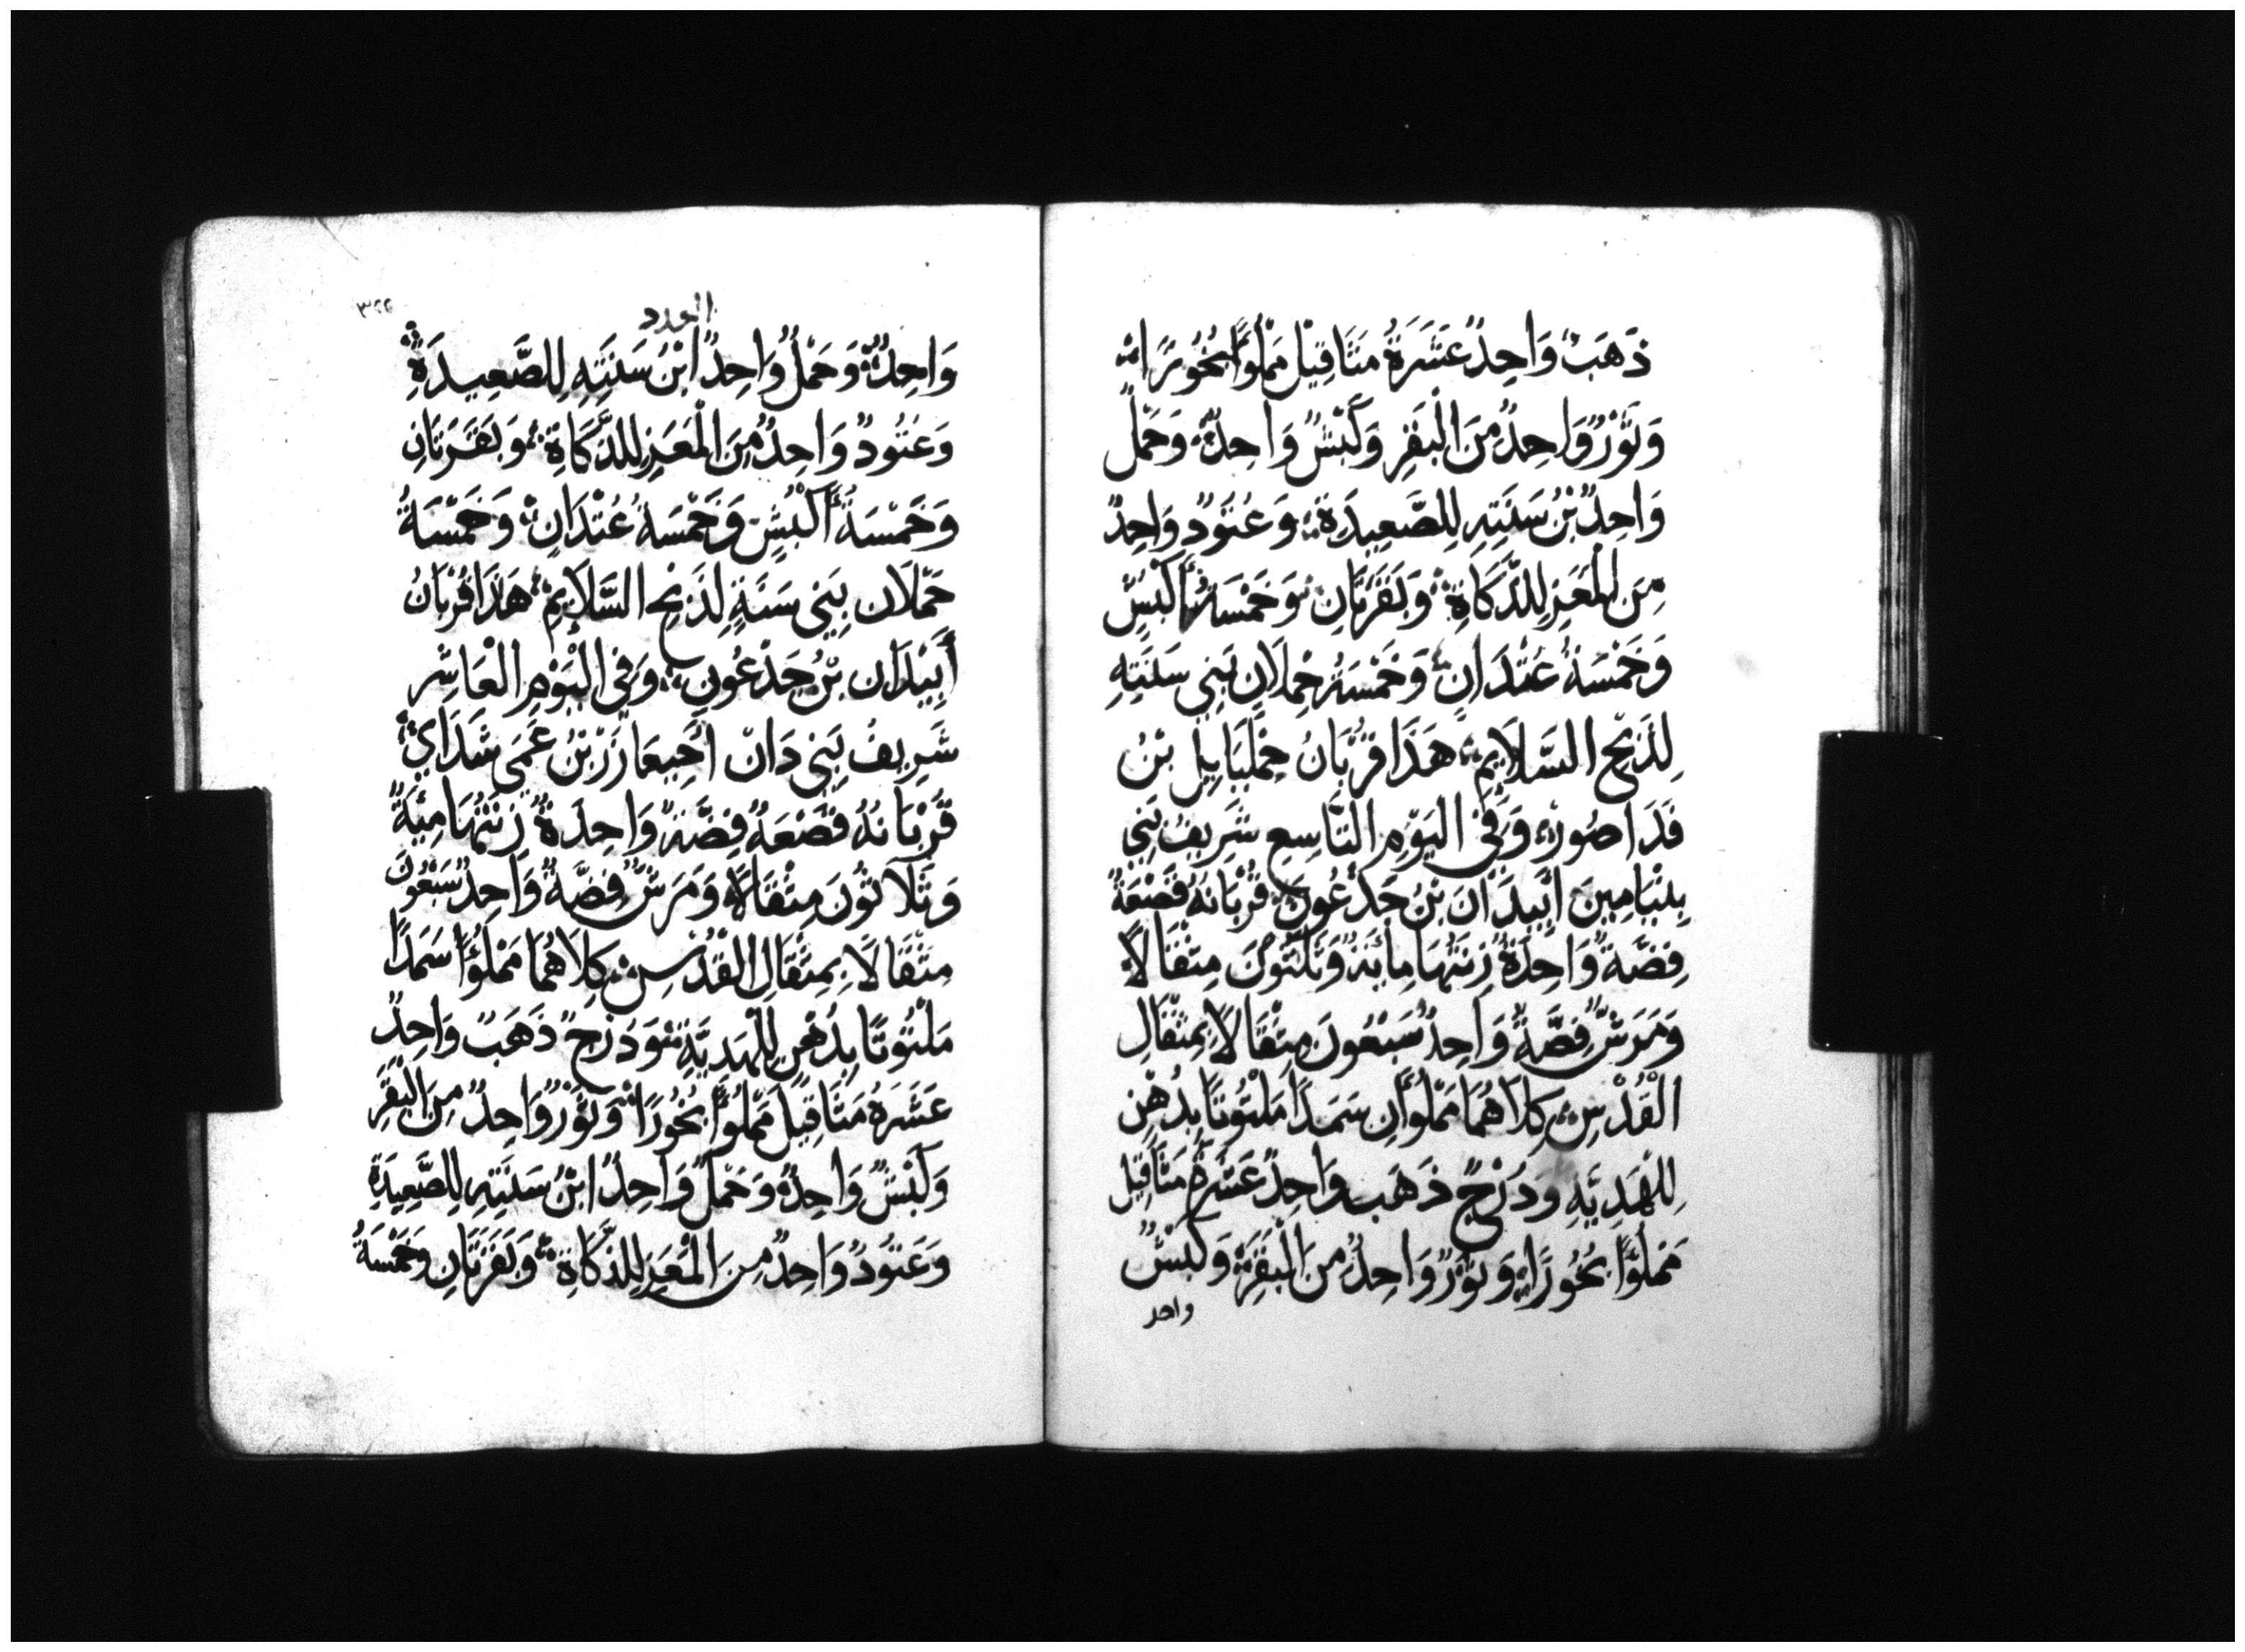 ذَهَبٌ وَاحِدٌ عَشَرَةُ مَثَاقِيْل مَمْلُوًا بُخُورًا
وَثَوْرٌ وَاحِدٌ مِنَ الْبَقَرِ وَكَبْشٌ وَاحِدٌ وَحَمْلٌ
وَاحِدٌ بْنُ سَنَتِهِ لِلصَّعِيدَةِ وَعَتُودٌ وَاحِدٌ
مِنَ الْمَعَزِ لِلذَّكَاةِ وَبَقَرَتَانِ وَخَمْسَةُ أَكْبُشٍ
وَخَمْسَةُ عُتْدَانٍ وَخَمْسَةُ حِمْلَانٍ بَنِي سَنَتِهِ
لِذَبْحِ السَّلَايِمِ هَذَا قُرْبَانُ جَمْلِيَايِيل بْنُ
فَدَاصُور وَفِي الْيَوْمِ التَّاسِعِ شَرِيفُ بَنِي
بِنْيَامِينَ أَبِيدَانَ بْنُ جَدْعُونِ قُرْبَانُهُ قَصْعَةُ
فِضَّةٌ وَاحِدَةٌ زِنَتُهَا مِائَةٌ وَثَلَثُونَ مِثْقَالًا
وَمَرَشٌّ فِضَّةٌ وَاحِدٌ سَبْعُونَ مِثْقَالًا بِمِثْقَالِ
الْقُدْسِ كِلَاهُمَا مَمْلُوَّانِ سَمَدًا مَلْتُوتًا بِدُهْنٍ
لِلْهَدِيَّةِ وَدُرْجٌ ذَهَب وَاحِدٌ عَشَرَةُ مَثَاقِيل
مَمْلُؤًا بُخُورًا وَثَوْرٌ وَاحِدٌ مِنَ الْبَقَرِ وَكَبْشٌ
واحد
العدد
٣٢٢
وَاحِدٌ وَحَمْلٌ وَاحِدٌ ابْنُ سَنَتِهِ لِلصَّعِيدَةِ
وَعَتُودٌ وَاحِدٌ مِنَ الْمَعَزِ لِلذَّكَاةِ وَبَقَرَتَانِ
وَخَمْسَةُ أَكْبُشٍ وَخَمْسَةُ عُتْدَانٍ وَخَمْسَةُ
حَمْلَان بَنِي سَنَةٍ لِذَبْحِ السَّلَايِمِ هَذَا قُرْبَانُ
أَبِيْدَان بْنُ جَدْعُونِ وَفِي الْيَوْمِ الْعَاشِر
شَرِيفُ بَنِي دَانْ احِيعَازَرْ بْنُ عَمِي شَدَاي
قُرْبَانُهُ قَصْعَةُ فِضَّةٌ وَاحِدَةٌ زِنَتُهَا مِيَةٌ
وَثَلَاثُونَ مِثْقَالًا وَمَرَشٌّ فِضَّةٌ وَاحِدٌ سَبْعُونَ
مِثْقَالًا بِمِثْقَالِ الْقُدْسِ كِلَاهُمَا مَمْلُؤًا سَمَدًا
مَلْتُوتًا بِدُهْنٍ لِلْهَدِيَّةِ وَدُرْجٌ ذَهَبٌ وَاحِدٌ
عَشَرَةُ مَثَاقِيلَ مَمْلُوًا بُخُورًا وَثَوْرٌ وَاحِدٌ مِنَ الْبَقَرِ
وَكَبْشٌ وَاحِدٌ وَحَمْلٌ وَاحِدٌ ابْنُ سَنَتِهِ لِلصَّعِيدَةِ
وَعَتُودٌ وَاحِدٌ مِنَ الْمَعَزِ لِلذَّكَاةِ وَبَقَرَتَانِ وَخَمْسَةُ